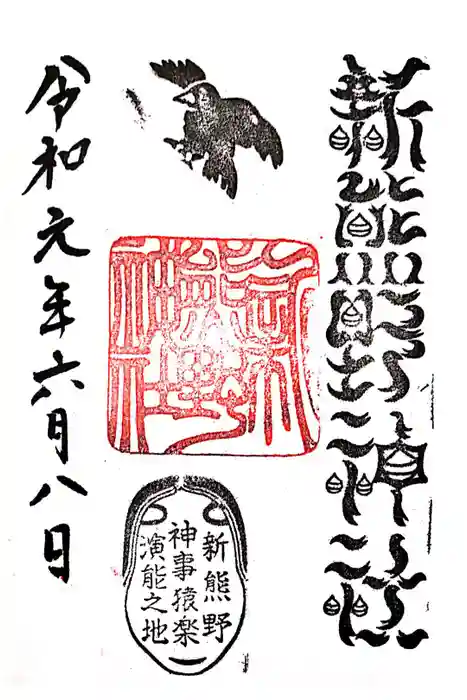 新熊野神社
新
熊野
神社
新熊野
神事猿楽
演能之地
令和元年六月八日